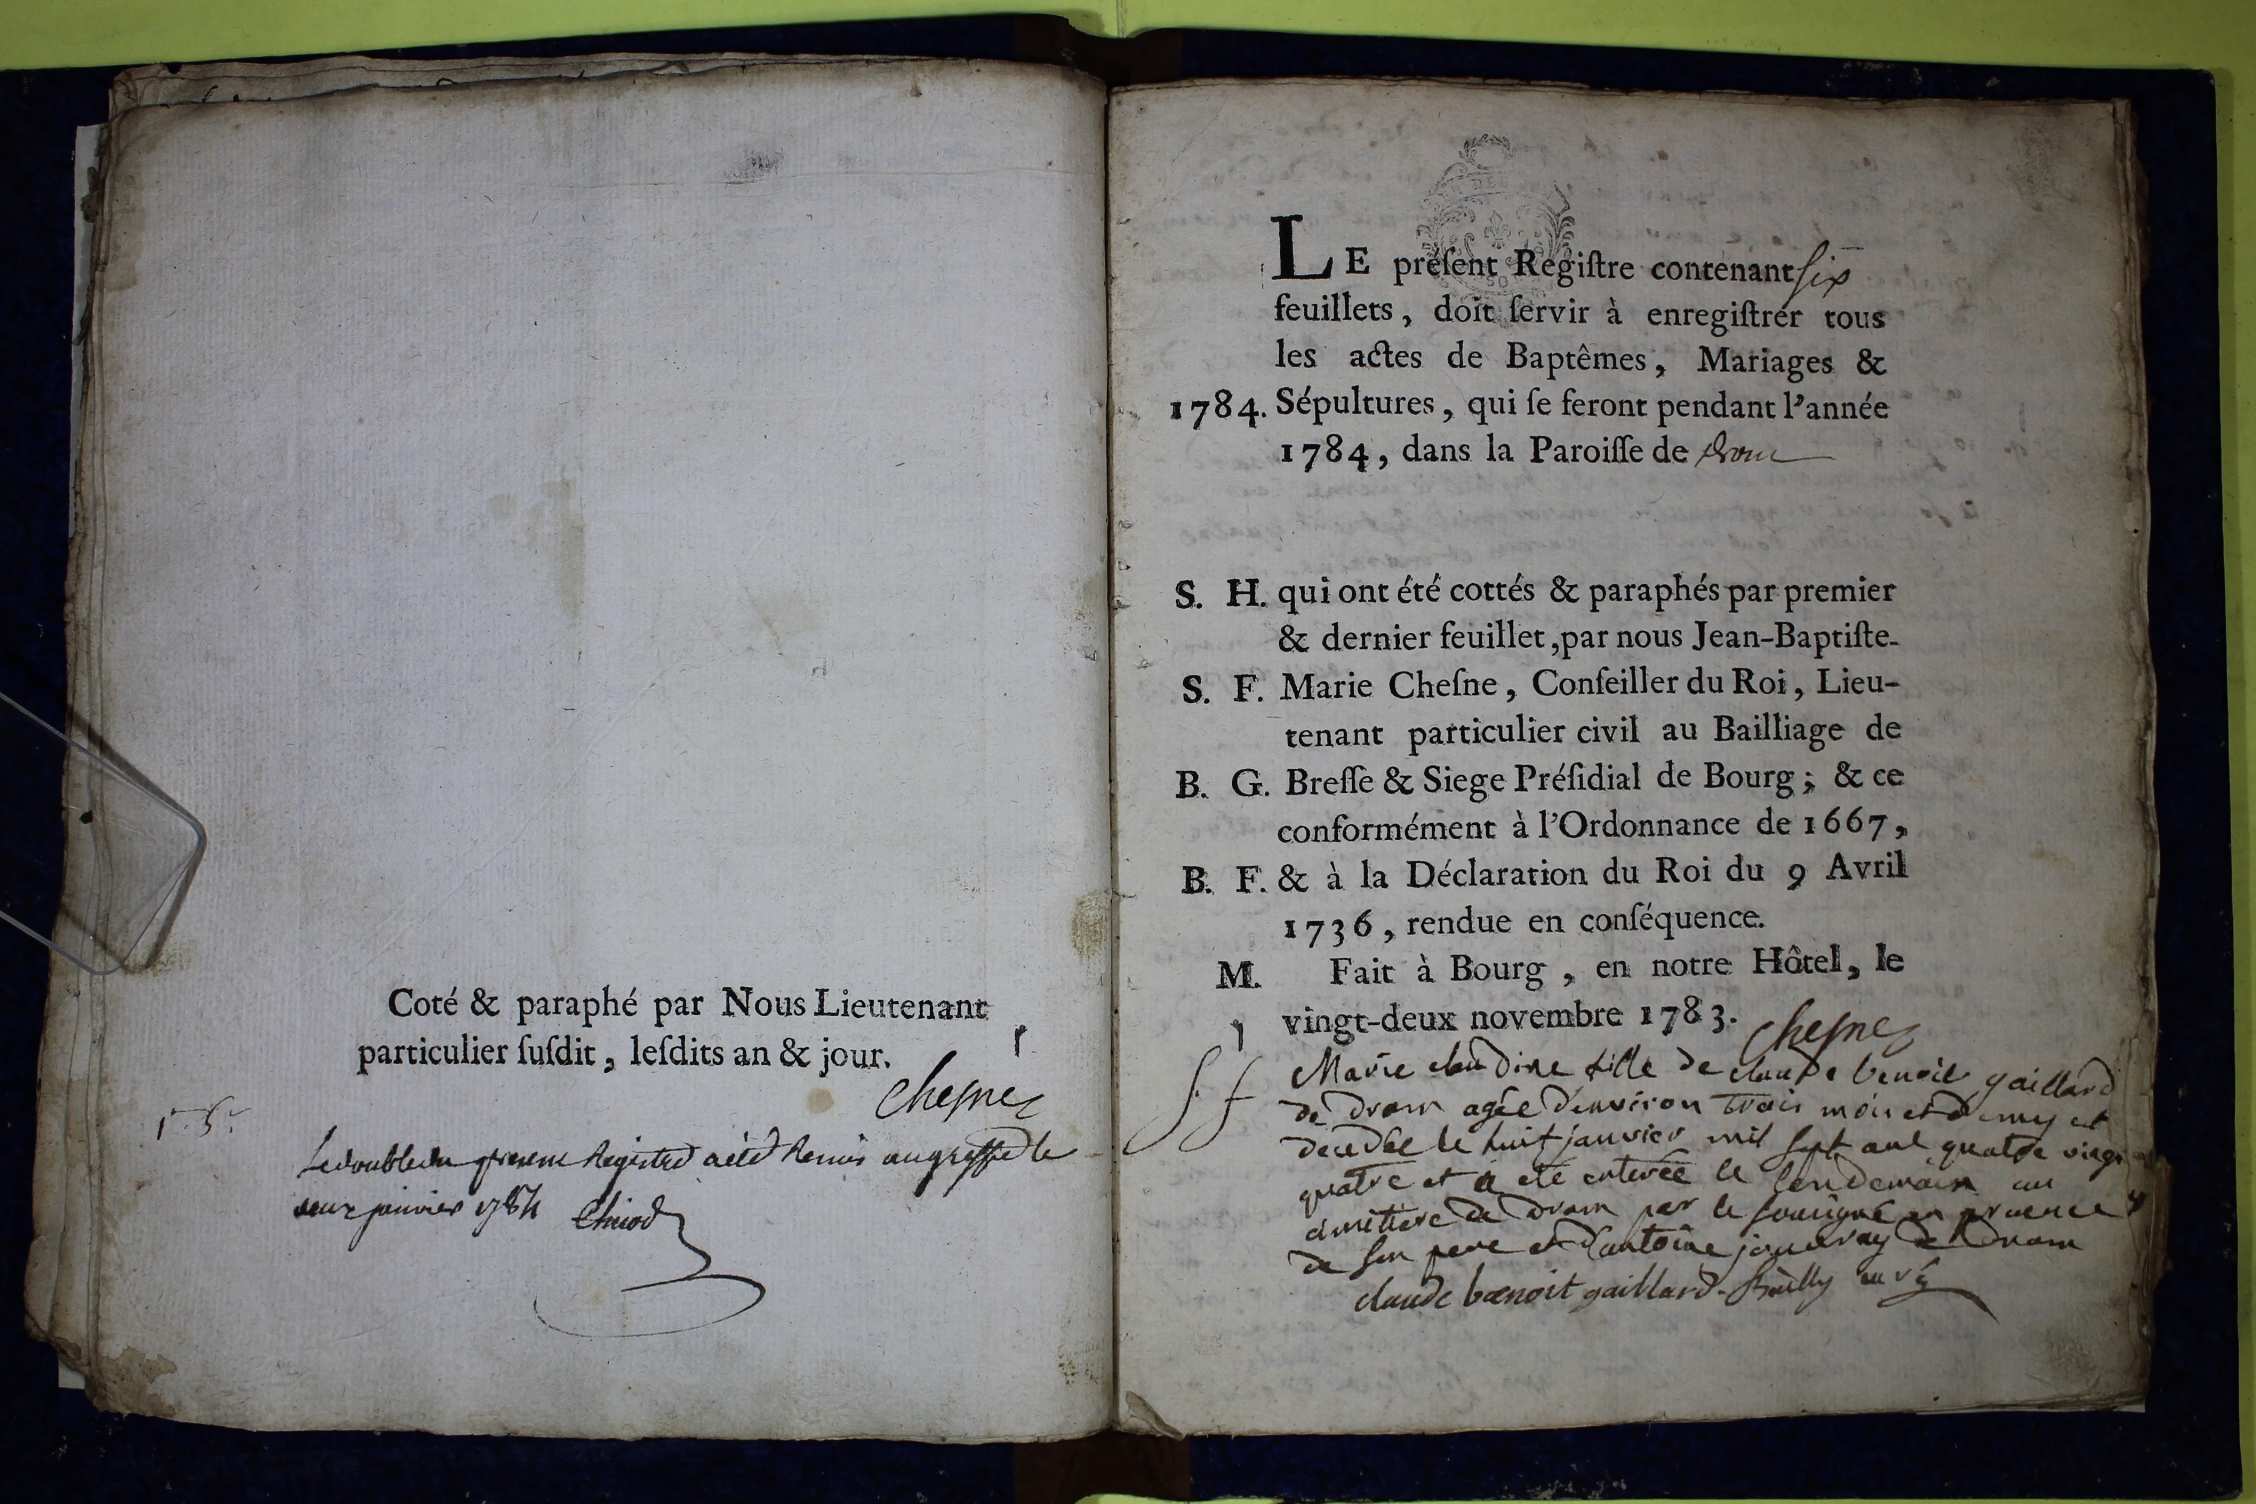 Coté & paraphé par Nous Lieutenant
particulier ſuſdit, leſdits an & jour.
Cheſne
Le double du present Registre a été Remis au greffe le
janvier 1784 Chiod
LE préſent Regiſtre contenant ſix
feuillets, doit ſervir à enregiſtrer tous
les actes de Baptêmes, Mariages &
1784. Sépultures, qui ſe feront pendant l'année
1784, dans la Paroiſſe de drom
S. H. qui ont été cottés & paraphés par premier
& dernier feuillet, par nous Jean-Baptiſte-
S. F. Marie Cheſne, Conſeiller du Roi, Lieu-
tenant particulier civil au Bailliage de
B. G. Breſſe & Siege Préſidial de Bourg; & ce
conformément à l'Ordonnance de 1667,
B. F. & à la Déclaration du Roi du 9 Avril
1736, rendue en conſéquence.
M. Fait à Bourg, en notre Hôtel, le
vingt-deux novembre 1783.
Cheſne
S. f Marie claudine fille de claude benoit gaillard
de drom agée d'environ trois mois et demy et
decedée le huit janvier mil sept cent quatre vingt
quatre et a eté enterée le lendemain au
cimittiere de drom par le souſigné en presence
de son pere et d'antoine de drom
claude benoit gaillard